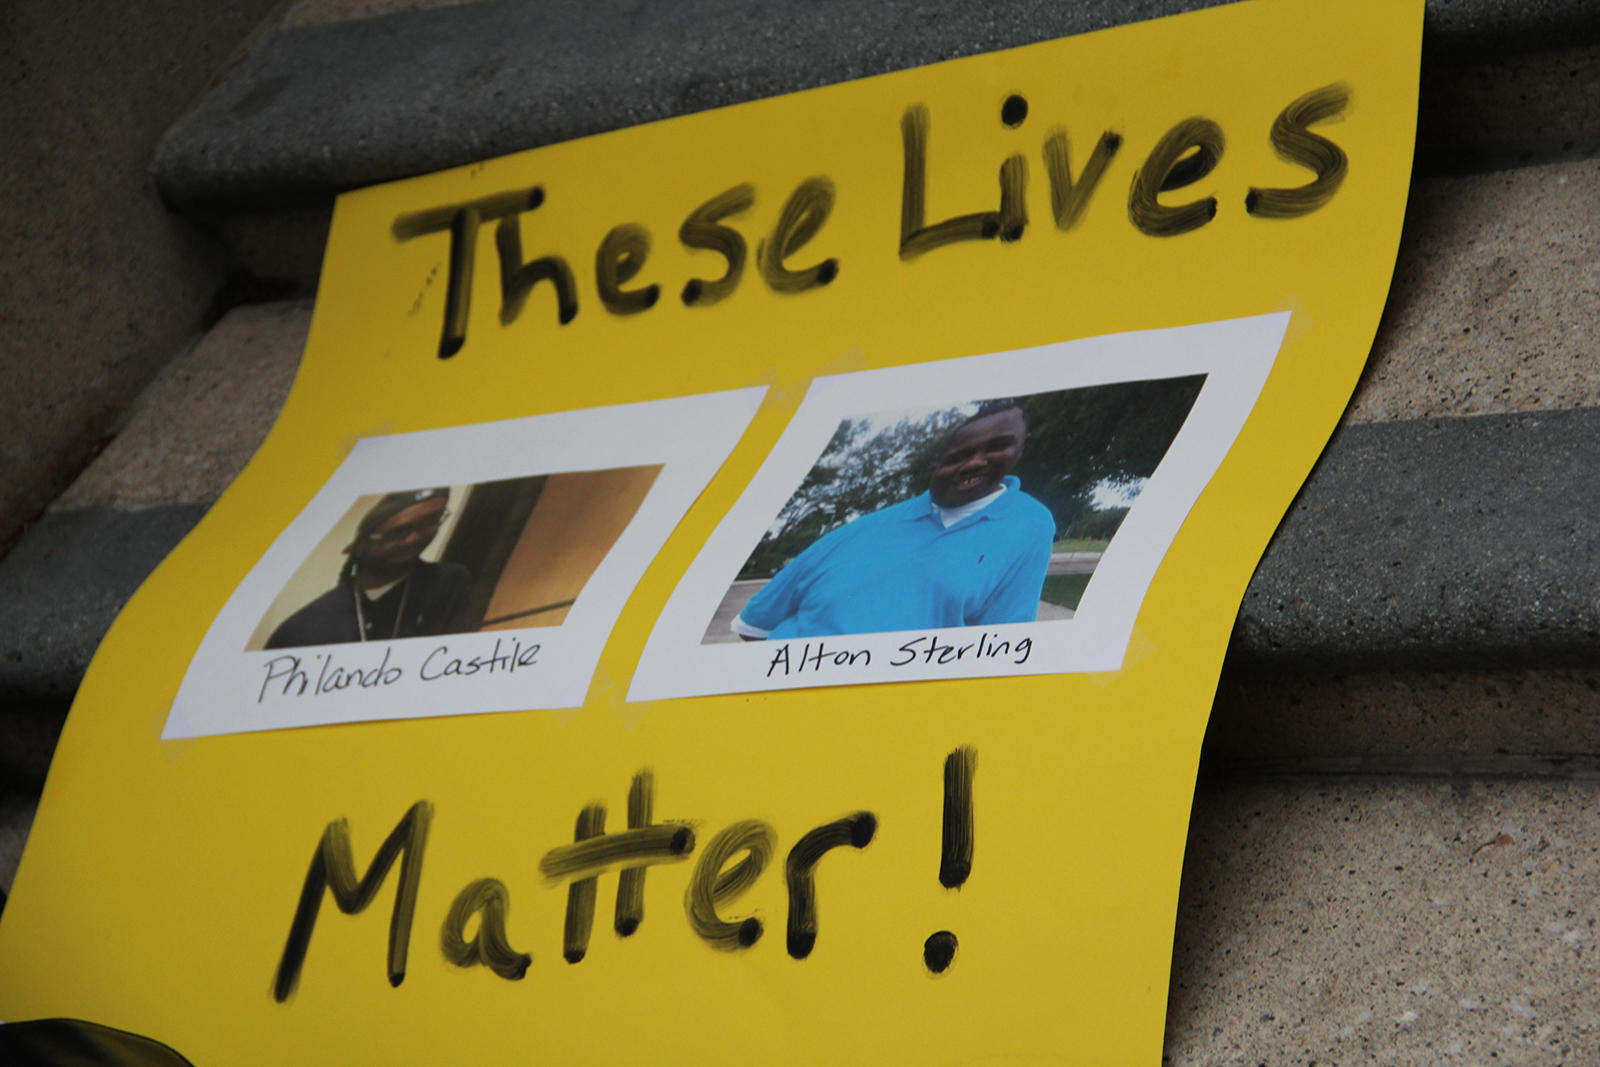 These Lives
Philando Castile
Alton Sterling
Matter!